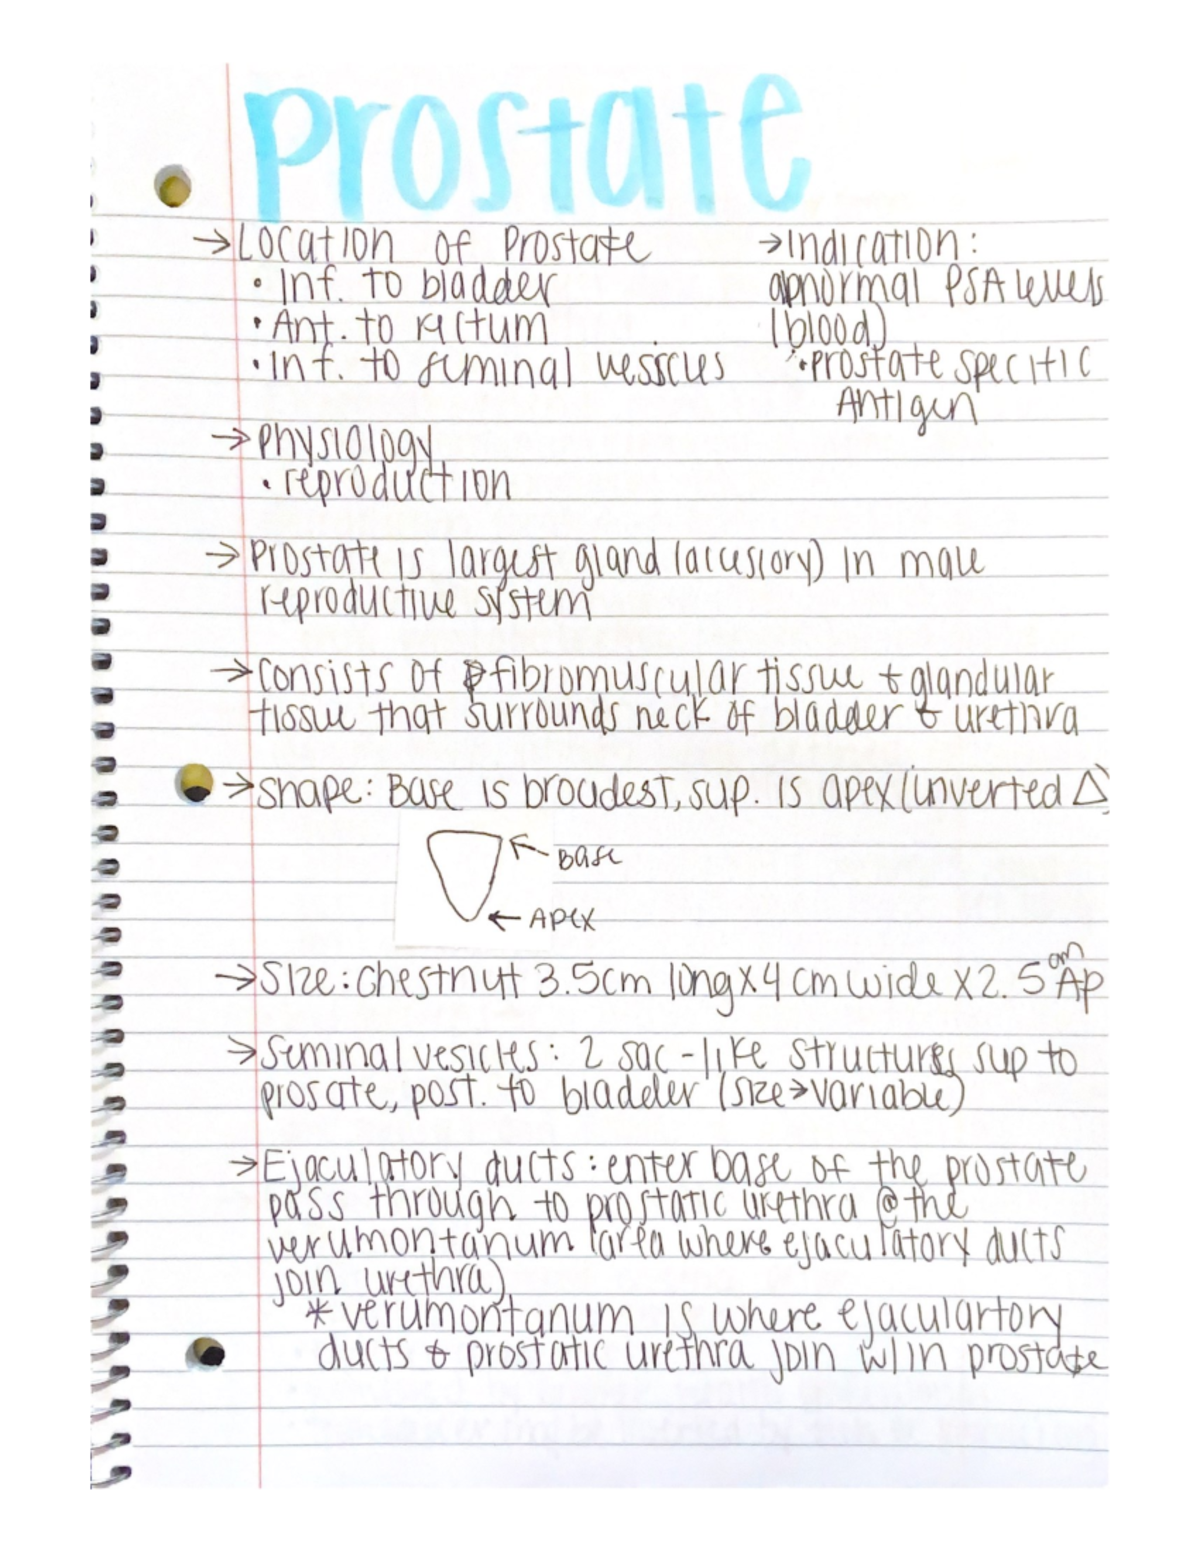 prostate
→Location of Prostate
• Inf. to bladder
• Ant. to rectum
• Inf. to seminal vessicles
→Indication:
abnormal PSA levels
(blood)
• prostate specific
Antigen
→Physiology
• reproduction
→Prostate is largest gland (accessory) in male
reproductive system
→Consists of fibromuscular tissue + glandular
tissue that surrounds neck of bladder & urethra
→Shape: Base is broadest, sup. is apex (inverted Δ)
← Base
← Apex
→Size: chestnut 3.5cm long x 4 cm wide x 2.5 cm Ap
→Seminal vesicles: 2 sac-like structures sup to
prosate, post. to bladder (size→variable)
→Ejaculatory ducts: enter base of the prostate
pass through to prostatic urethra @ the
verumontanum (area where ejaculatory ducts
join urethra)
* verumontanum is where ejaculartory
ducts & prostatic urethra join w/in prostate